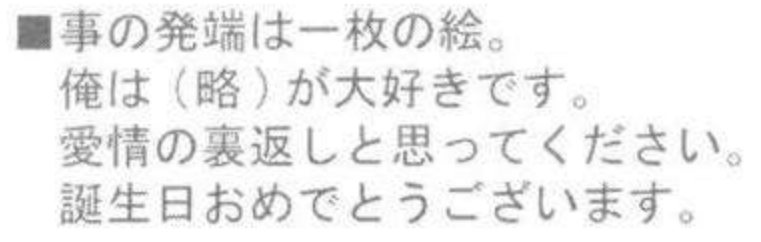 ■事の発端は一枚の絵。
俺は(略)が大好きです。
愛情の裏返しと思ってください。
誕生日おめでとうございます。